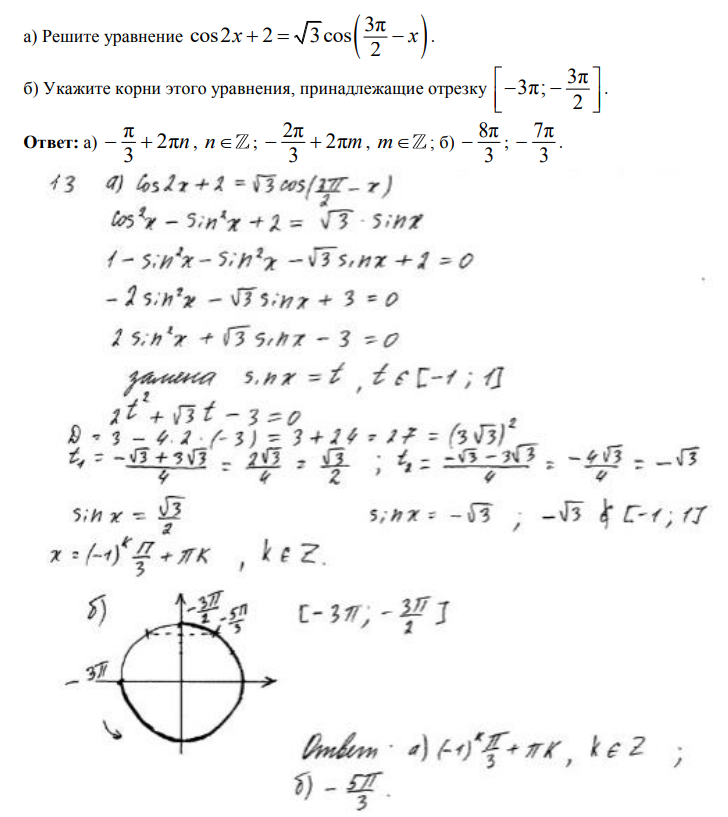 а) Решите уравнение cos2x + 2 = √3 cos(3π/2 − x).
б) Укажите корни этого уравнения, принадлежащие отрезку [−3π; −3π/2].
Ответ: а) −π/3 + 2πn, n∈ℤ; −2π/3 + 2πm, m∈ℤ; б) −8π/3; −7π/3.
13 а) cos2x + 2 = √3 cos(3π/2 − x)
cos²x − sin²x + 2 = √3 · sinx
1 − sin²x − sin²x − √3 sinx + 2 = 0
−2 sin²x − √3 sinx + 3 = 0
2 sin²x + √3 sinx − 3 = 0
замена sinx = t, t ∈ [−1; 1]
2t² + √3 t − 3 = 0
D = 3 − 4·2·(−3) = 3 + 24 = 27 = (3√3)²
t₁ = (−√3 + 3√3)/4 = 2√3/4 = √3/2 ; t₂ = (−√3 − 3√3)/4 = −4√3/4 = −√3
sinx = √3/2 sinx = −√3 ; −√3 ∉ [−1; 1]
x = (−1)^k π/3 + πk, k ∈ Z.
б) −3π/2 [−3π; −3π/2]
−5π/3
−3π
Ответ: а) (−1)^k π/3 + πk, k ∈ Z ;
б) −5π/3.